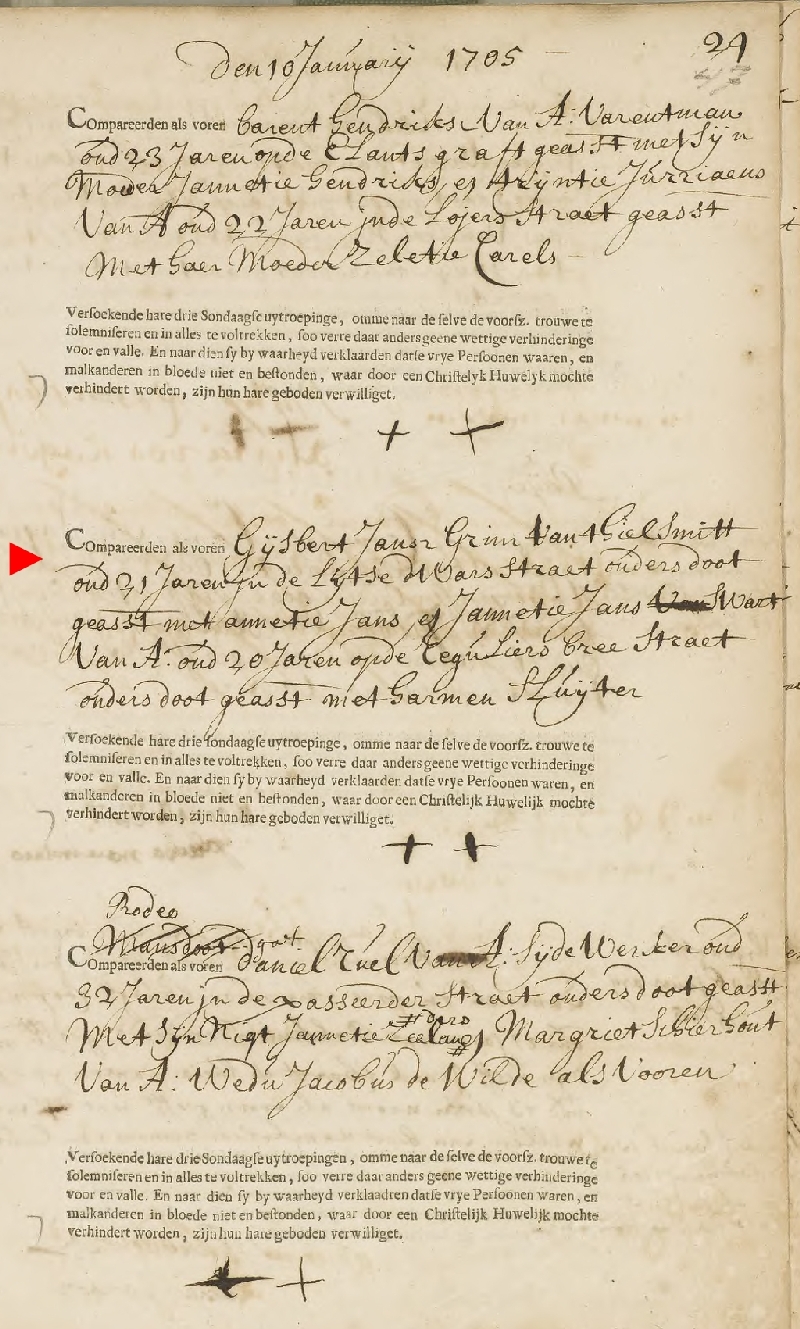 den 10 January 1705
24
Compareerden als voren barent hendricks Van A: Varentman
oud 23 Jaren opde Elants graft geasst met Syn
Moeder Jannetie hendricks, ej tryntie Jurriaens
Van A oud 22 Jaren jnde Lojers Straet geasst
Met haer Moeder Zeletie Carels
Versoekende hare drie Sondaagse uytroepinge, omme naar de selve de voorsz. trouwe te
solemniseren en in alles te voltrekken, soo verre daar anders geene wettige verhinderinge
voor en valle. En naar dien sy by waarheyd verklaarden datse vrye Persoonen waaren, en
malkanderen in bloede niet en bestonden, waar door een Christelyk Huwelyk mochte
verhindert worden, zijn hun hare geboden verwilliget.
Compareerden als voren Gijsbert Jansz Grim Van A Gielsmitt
oud 21 Jaren jn de Lytse dWars Straet ouders doot
geasst met annetie Jans, ej Jannetie Jans Swart
Van A: oud 20 Jaren opde Reguliers bree Straet
ouders doot geasst met harmen Sluyter
Versoekende hare drie sondaagse uytroepinge, omme naar de selve de voorsz. trouwe te
solemniseren en in alles te voltrekken, soo verre daar anders geene wettige verhinderinge
voor en valle. En naar dien sy by waarheyd verklaarden datse vrye Persoonen waaren, en
malkanderen in bloede niet en bestonden, waar door een Christelijk Huwelijk mochte
verhindert worden, zijn hun hare geboden verwilliget.
Compareerden als voren daniel Van A: Syde Werker oud
32 Jaren jn de passeerder Straet ouders doot geasst
Met Syn Nigt Jannetie ej Margriet Schierhout
Van A: Wedu Jacobus de Wilde als Vooren
Versoekende hare drie Sondaagse uytroepingen, omme naar de selve de voorsz. trouwe te
solemniseren en in alles te voltrekken, soo verre daar anders geene wettige verhinderinge
voor en valle. En naar dien sy by waarheyd verklaadren datse vrye Persoonen waren, en
malkanderen in bloede niet en bestonden, waar door een Christelijk Huwelijk mochte
verhindert worden, zijn hun hare geboden verwilliget.